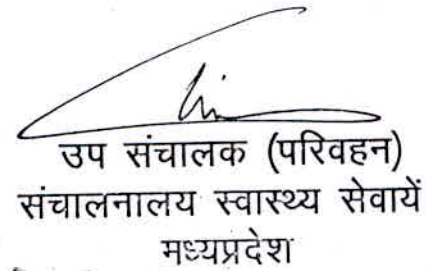 उप संचालक (परिवहन)
संचालनालय स्वास्थ्य सेवायें
मध्यप्रदेश